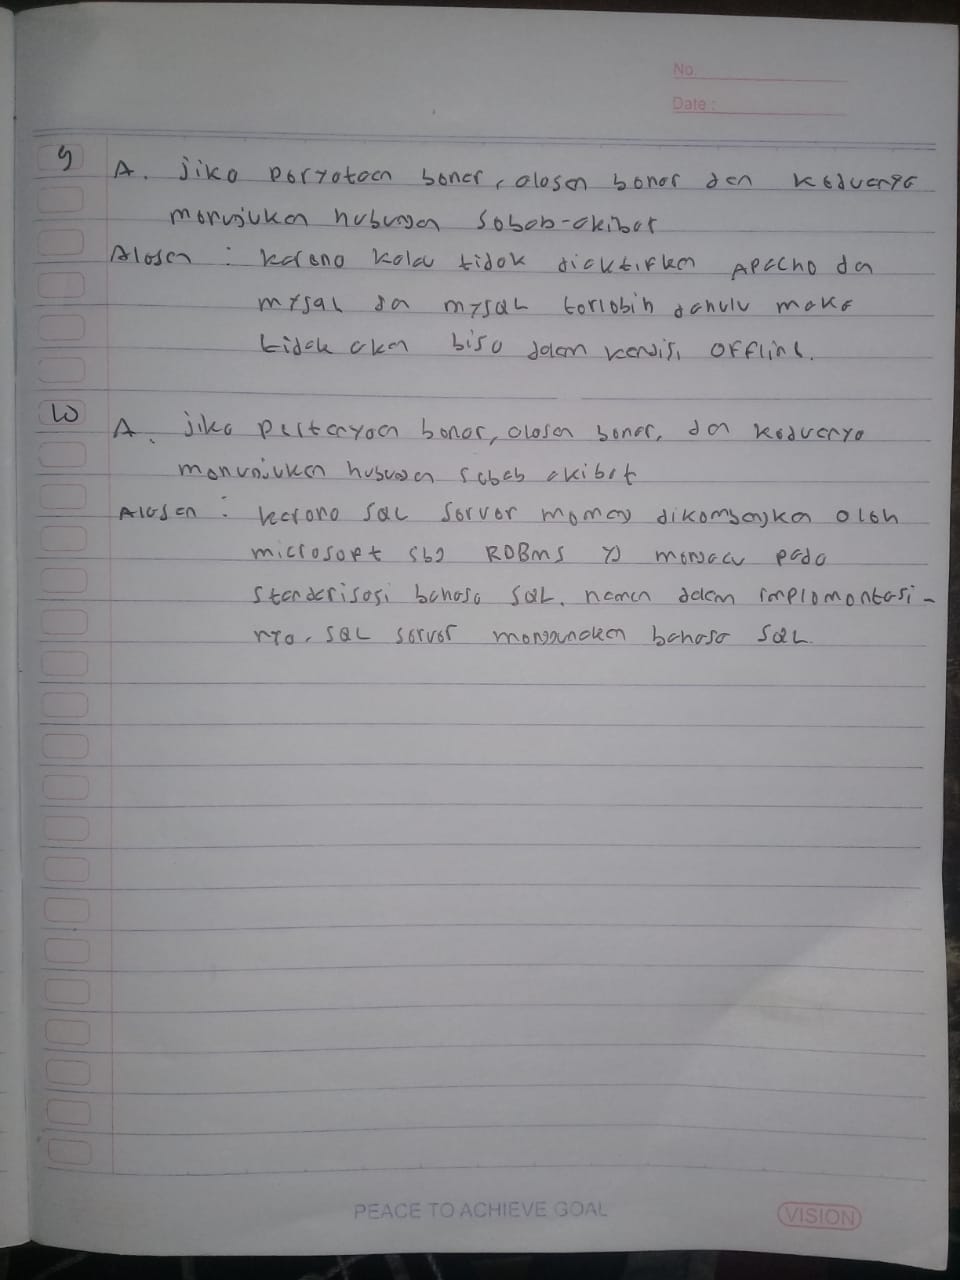 No.
Date :
9 A. jika pernyataan benar, alasan benar dan keduanya
menunjukan hubungan sebab-akibat
Alasan : karena kalau tidak diaktifkan Apache dan
mysal da mysQL terlebih dahulu maka
tidak akan bisa dalam kondisi OFFline.
10 A. jika pertanyaan benar, alasan benar, dan keduanya
menunjukan hubungan sebab akibat
Alasan : karena SQL Server memang dikembangka oleh
microsoft sbg RDBms yg mengacu pada
standarisasi bahasa SQL. namun dalam implementasi-
nya, SQL server menggunakan bahasa SQL.
PEACE TO ACHIEVE GOAL
VISION